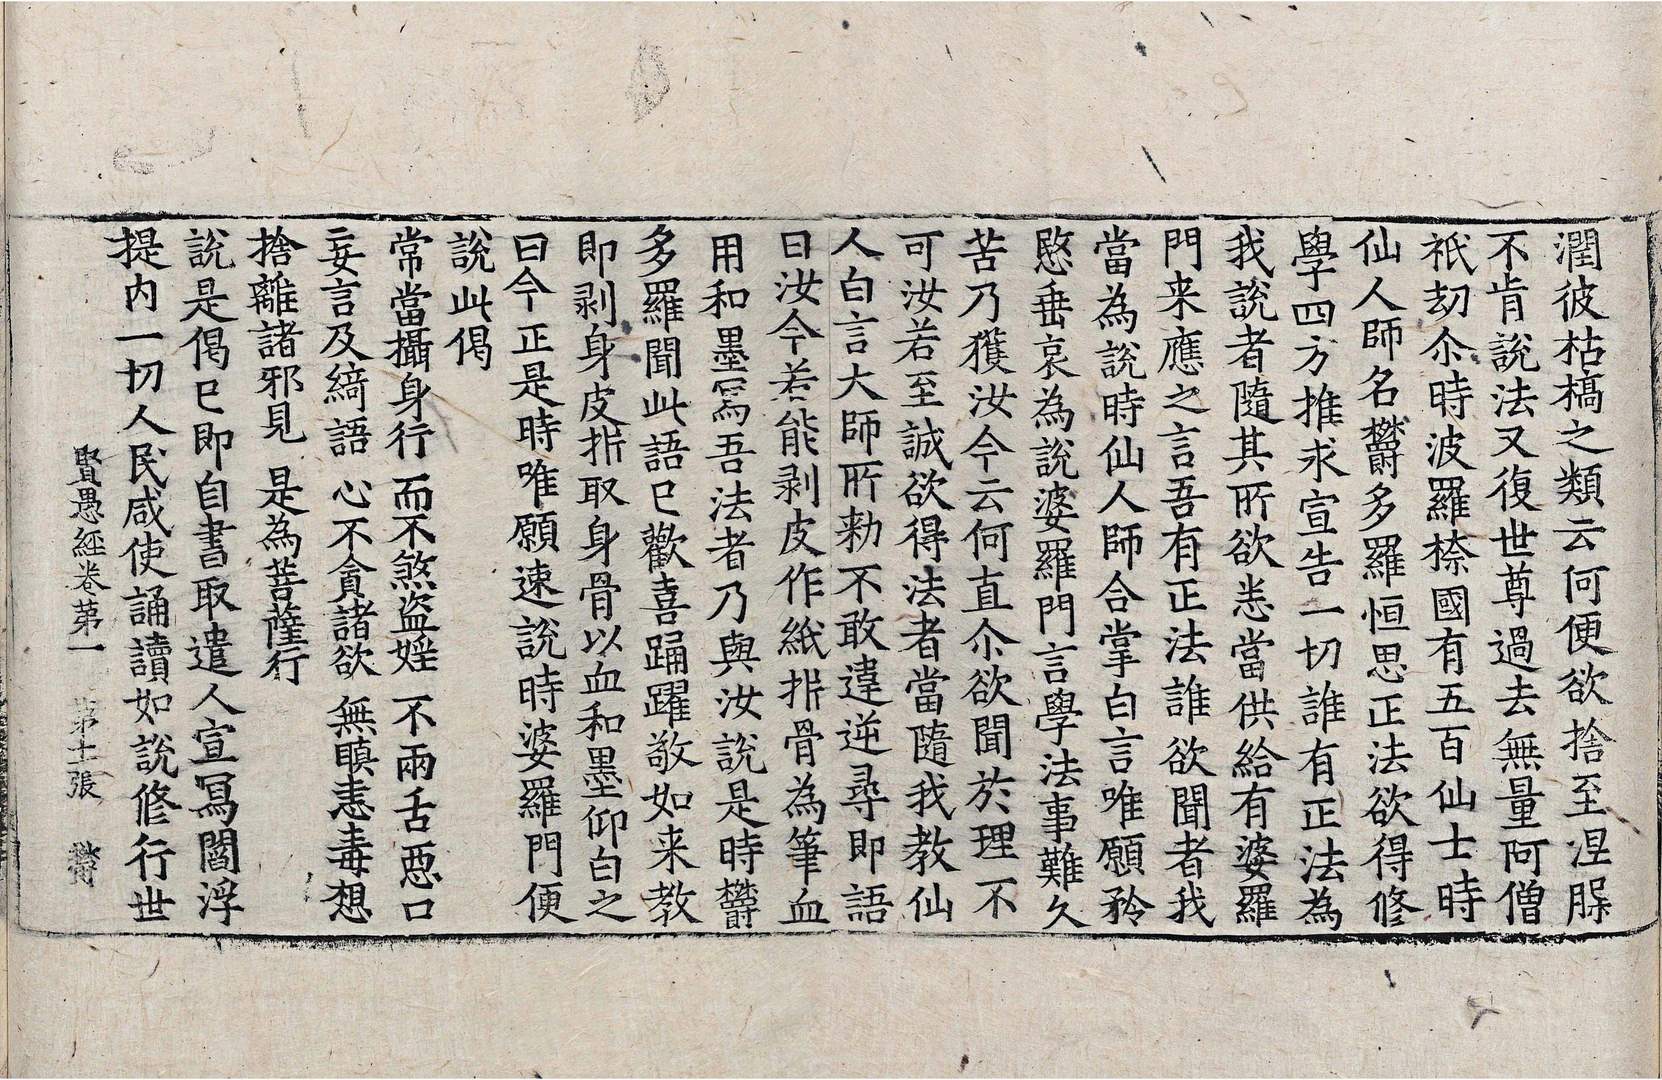 潤彼枯槁之類云何便欲捨至涅槃
不肯說法又復世尊過去無量阿僧
祇劫尒時波羅㮈國有五百仙士時
仙人師名欝多羅恒思正法欲得修
學四方推求宣告一切誰有正法為
我說者隨其所欲恙當供給有婆羅
門来應之言吾有正法誰欲聞者我
當為說時仙人師合掌白言唯願矜
愍垂哀為說婆羅門言學法事難久
苦乃獲汝今云何直尒欲聞於理不
可汝若至誠欲得法者當隨我教仙
人白言大師所勑不敢違逆尋即語
曰汝今若能剥皮作紙析骨為筆血
用和墨寫吾法者乃與汝說是時欝
多羅聞此語已歡喜踊躍敬如来教
即剥身皮析取身骨以血和墨仰白之
曰今正是時唯願速說時婆羅門便
說此偈
常當攝身行 而不煞盜婬 不兩舌惡口
妄言及綺語 心不貪諸欲 無瞋恚毒想
捨離諸邪見 是為菩薩行
說是偈已即自書取遣人宣寫閻浮
提内一切人民咸使誦讀如說修行世
賢愚經卷第一 第十二張 欝